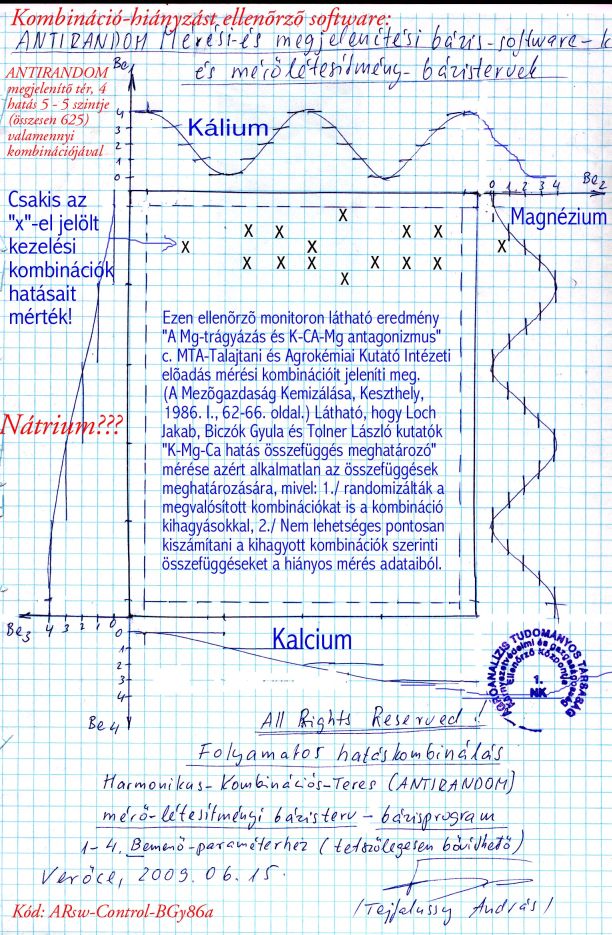 Kombináció-hiányzást ellenõrzõ software:
ANTIRANDOM Mérési-és megjelenítési bázis-software-k
és mérőlétesítmény-bázistervek
Be1
ANTIRANDOM
megjelenítõ tér, 4
hatás 5 - 5 szintje
(összesen 625)
valamennyi
kombinációjával
4
3
2
1
0
Kálium
0 1 2 3 4
Be2
Magnézium
Csakis az
"x"-el jelölt
kezelési
kombinációk
hatásait
mérték!
X
X X X X
X X X
X X X X X X
X
Ezen ellenõrzõ monitoron látható eredmény
"A Mg-trágyázás és K-CA-Mg antagonizmus"
c. MTA-Talajtani és Agrokémiai Kutató Intézeti
elõadás mérési kombinációit jeleníti meg.
(A Mezõgazdaság Kemizálása, Keszthely,
1986. I., 62-66. oldal.) Látható, hogy Loch
Jakab, Biczók Gyula és Tolner László kutatók
"K-Mg-Ca hatás összefüggés meghatározó"
mérése azért alkalmatlan az összefüggések
meghatározására, mivel: 1./ randomizálták a
megvalósított kombinációkat is a kombináció
kihagyásokkal, 2./ Nem lehetséges pontosan
kiszámítani a kihagyott kombinációk szerinti
összefüggéseket a hiányos mérés adataiból.
Nátrium???
Be3
4 3 2 1 0
0
1
2
3
4
Be4
Kalcium
AGROANALÍZIS TUDOMÁNYOS TÁRSASÁG
Környezetvédelmi és gazdaságossági
Ellenőrző Központja
1.
NK
All Rights Reserved!
Folyamatos hatáskombinálás
Harmonikus-Kombinációs-Teres (ANTIRANDOM)
mérő-létesítményi bázisterv - bázisprogram
1-4. Bemenő-paraméterhez (tetszőlegesen bővíthető)
Verőce, 2009.06.15.
/Tejfalussy András/
Kód: ARsw-Control-BGy86a